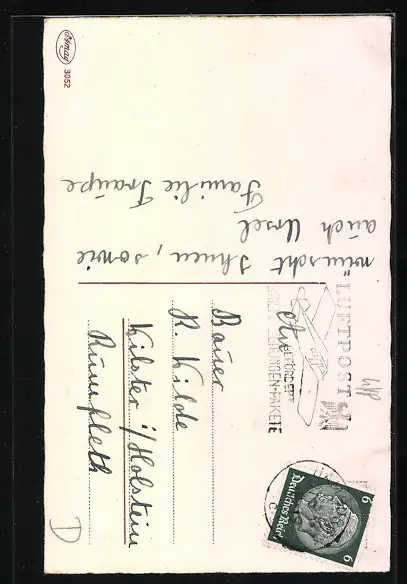 Amag
3052
wünscht Ihnen, sowie
auch Ursel
Familie Traupe
"LUFTPOST"
BEFÖRDERT
ZEITUNGEN-PAKETE
An
Bauer
R. Wilde
Wilster i/Holstein
Rumfleth
Deutsches Reich
6
6
D